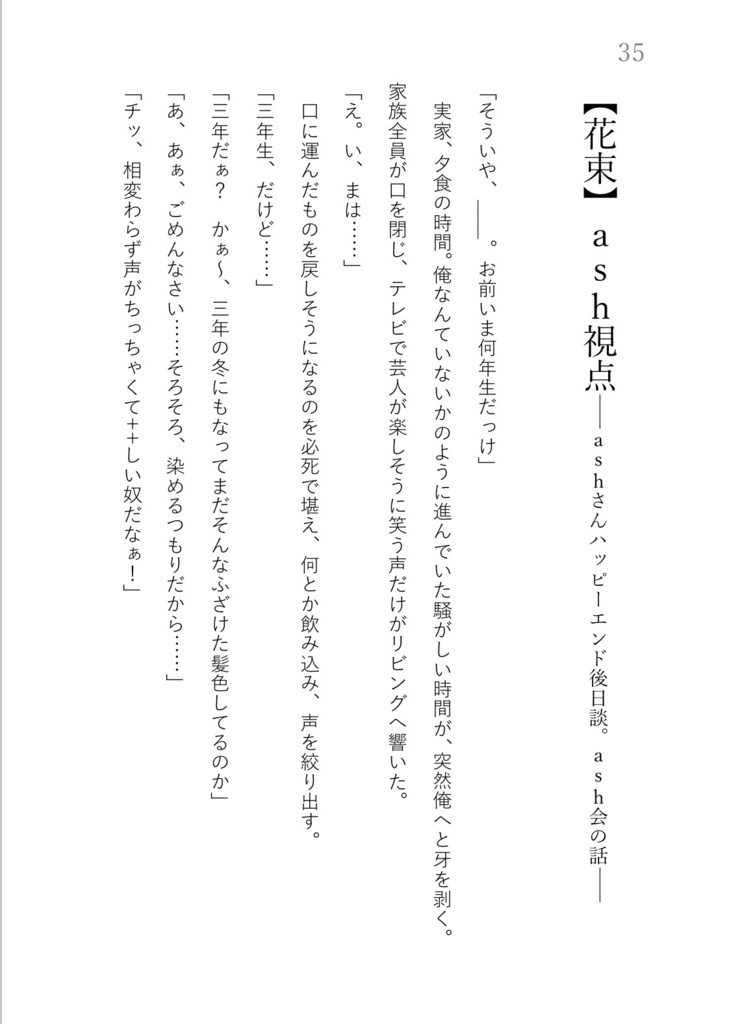 35
【花束】 ash視点――ashさんハッピーエンド後日談。ash会の話――
「そういや、――。お前いま何年生だっけ」
　実家、夕食の時間。俺なんていないかのように進んでいた騒がしい時間が、突然俺へと牙を剥く。
家族全員が口を閉じ、テレビで芸人が楽しそうに笑う声だけがリビングへ響いた。
「え。い、まは……」
　口に運んだものを戻しそうになるのを必死で堪え、何とか飲み込み、声を絞り出す。
「三年生、だけど……」
「三年だぁ？　かぁ〜、三年の冬にもなってまだそんなふざけた髪色してるのか」
「あ、あぁ、ごめんなさい……そろそろ、染めるつもりだから……」
「チッ、相変わらず声がちっちゃくて++しい奴だなぁ！」